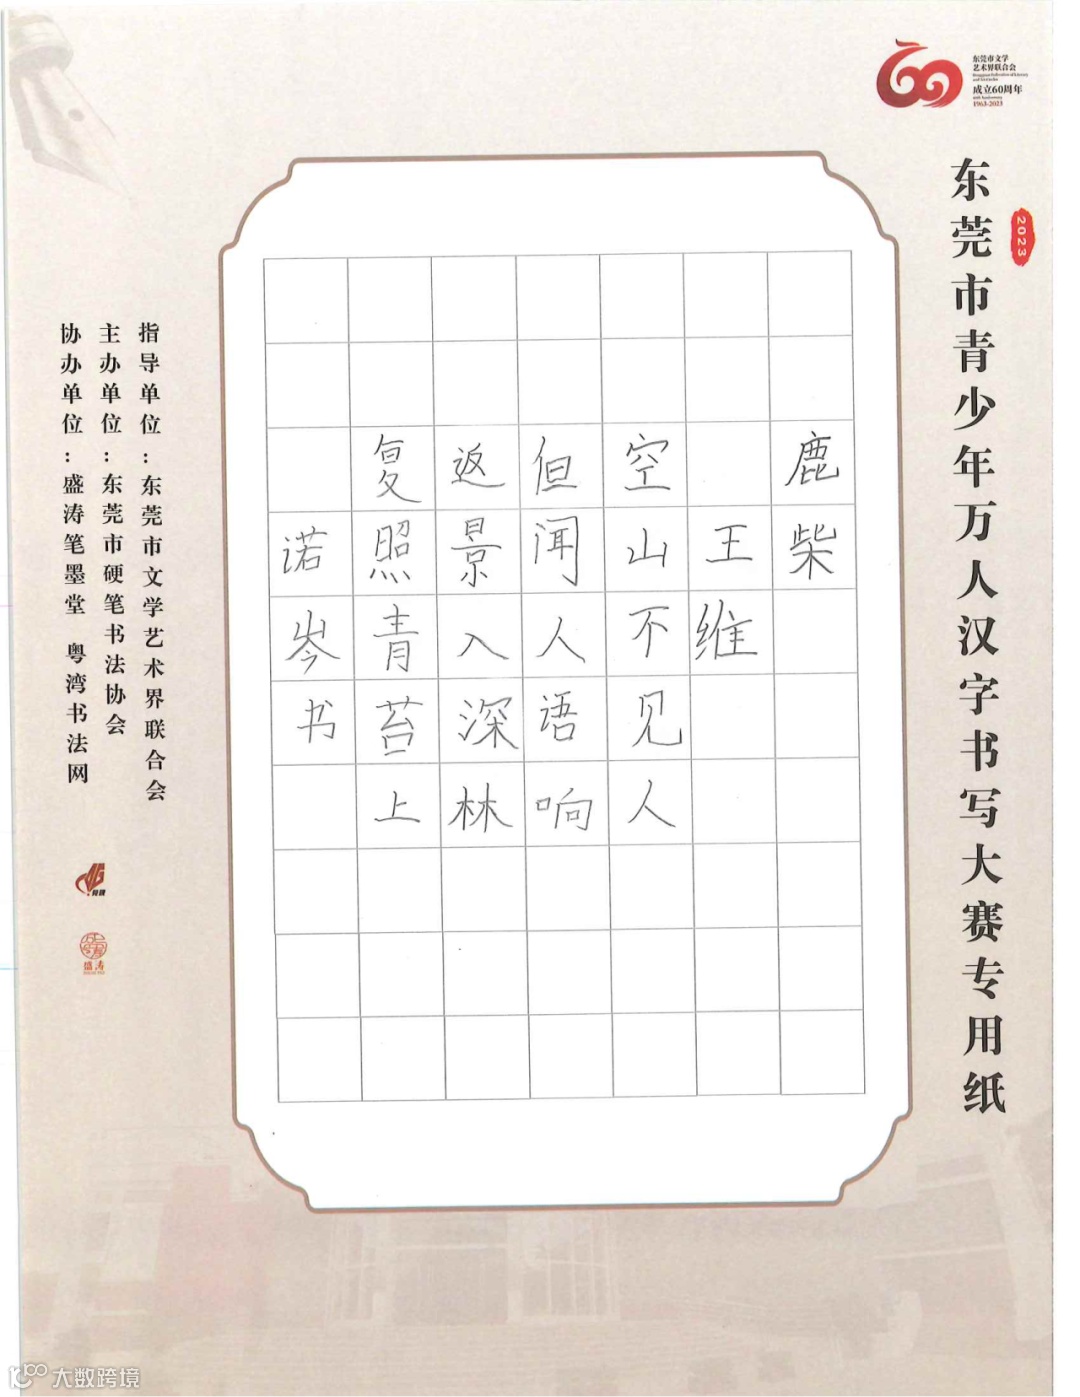 东莞市文学
艺术界联合会
成立60周年
1963-2023
2023
东莞市青少年万人汉字书写大赛专用纸
鹿柴
王维
空山不见人
但闻人语响
返景入深林
复照青苔上
诺岑书
指导单位：东莞市文学艺术界联合会
主办单位：东莞市硬笔书法协会
协办单位：盛涛笔墨堂 粤湾书法网
盛涛
大数跨境